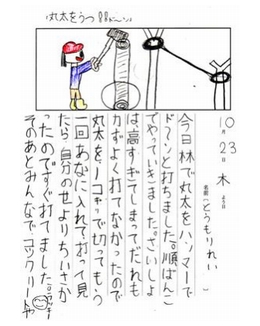 丸太をうつ 88ドーン!
10月23日木よう日
名前(とうもりれい)
今日林で丸太をハンマーで
ドーンと打ちました。順ばんこ
でやっていきました。さいしょ
は高すぎてしまってだれも
力ずよく打てなかったので
丸太をノコギで切ってもう
一回あなに入れて打って見
たら自分のせよりちいさか
ったのですぐ打てました。
そのあとみんなでコックリート